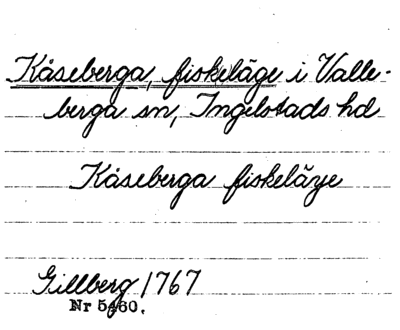 Kåseberga, fiskeläge i Valle-
berga sn, Ingelstads hd
Kåseberga fiskeläge
Gillberg 1767
Nr 5460.